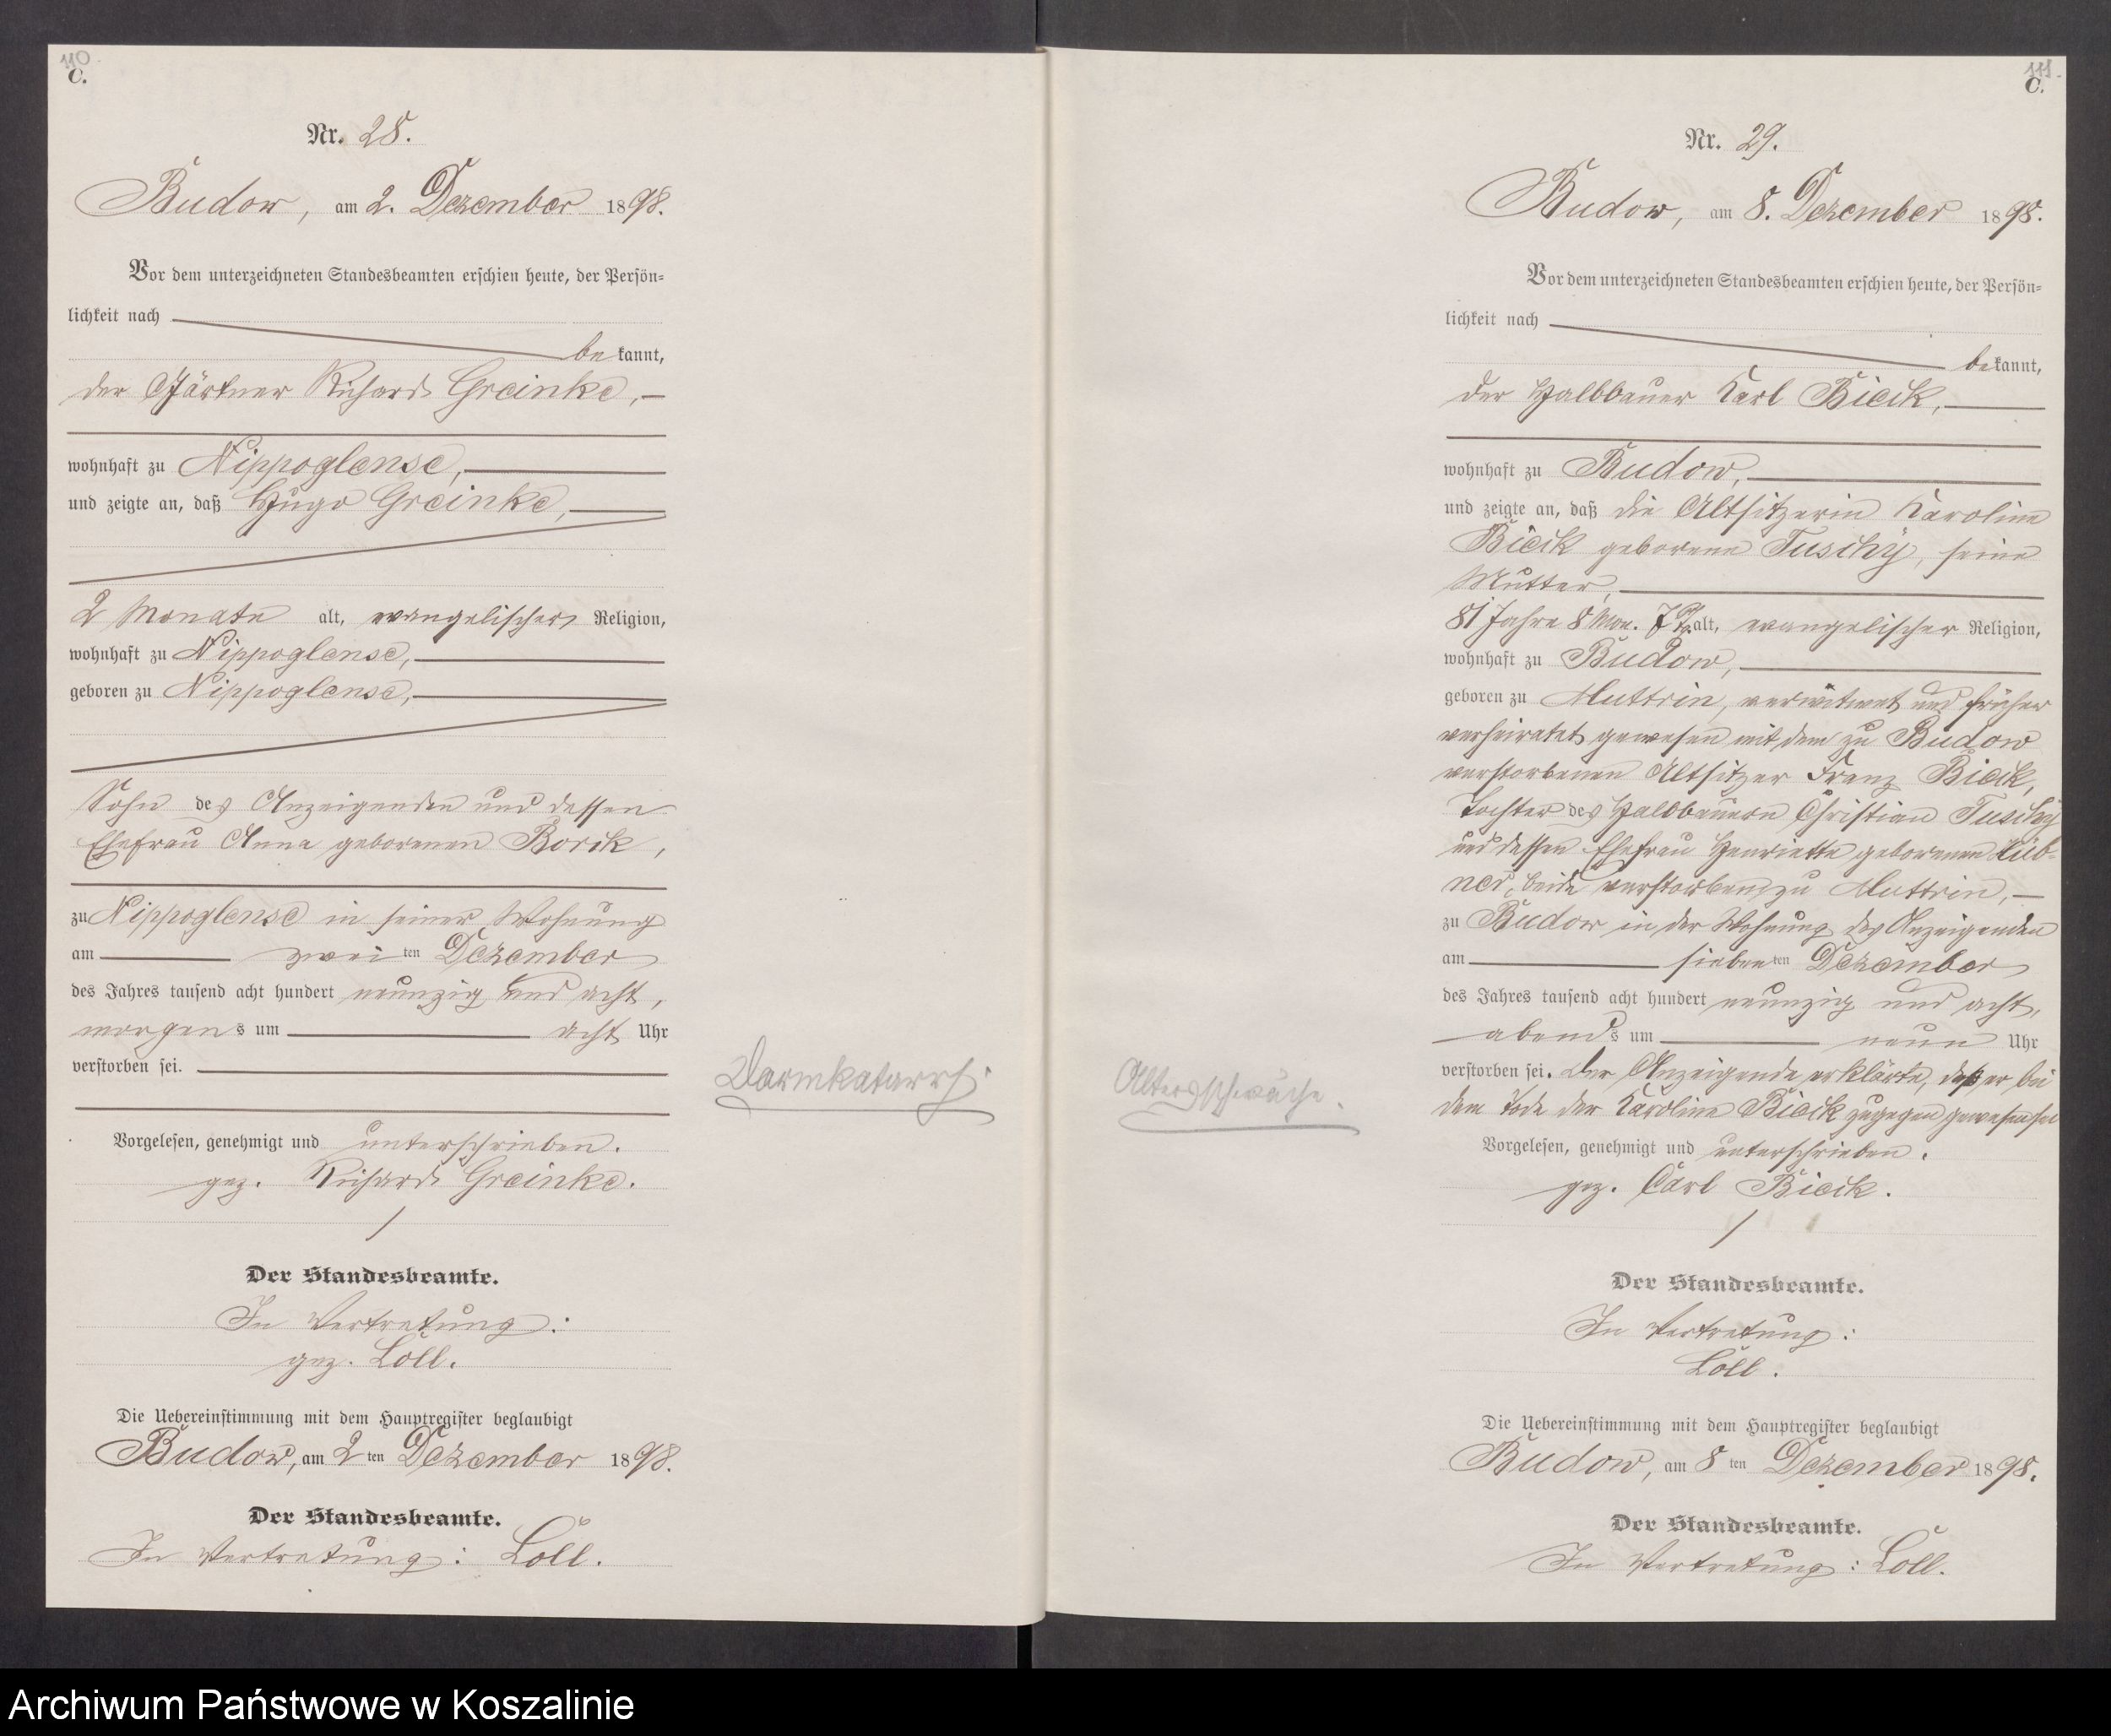 110.
C.
Nr. 28.
Budow, am 2. Dezember 1898.
Vor dem unterzeichneten Standesbeamten erschien heute, der Persön-
lichkeit nach
bekannt,
der Gärtner Richard Greinke,
wohnhaft zu Nippoglense,
und zeigte an, daß Hugo Greinke,
2 Monate alt, evangelischer Religion,
wohnhaft zu Nippoglense,
geboren zu Nippoglense,
Sohn des Anzeigenden und dessen
Ehefrau Anna geborenen Borik,
zu Nippoglense in seiner Wohnung
am zweiten Dezember
des Jahres tausend acht hundert neunzig und acht,
morgens um acht Uhr
verstorben sei.
Darmkatarrh
Vorgelesen, genehmigt und unterschrieben.
gez. Richard Greinke.
Der Standesbeamte.
In Vertretung:
gez. Löll.
Die Uebereinstimmung mit dem Hauptregister beglaubigt
Budow, am 2ten Dezember 1898.
Der Standesbeamte.
In Vertretung: Löll.
111.
C.
Nr. 29.
Budow, am 8. Dezember 1898.
Vor dem unterzeichneten Standesbeamten erschien heute, der Persön-
lichkeit nach
bekannt,
der Halbbauer Karl Bieik,
wohnhaft zu Budow,
und zeigte an, daß die Altsitzerin Karoline
Bieik geborene Tuschy, seine
Mutter,
81 Jahre 8 Mon. 7 T. alt, evangelischer Religion,
wohnhaft zu Budow,
geboren zu Muttrin, verwitwet und früher
verheiratet gewesen mit dem zu Budow
verstorbenen Altsitzer Franz Bieik,
Tochter des Halbbauern Christian Tuschy
und dessen Ehefrau Henriette geborenen Küb-
ner, beide verstorben zu Muttrin,
zu Budow in der Wohnung des Anzeigenden
am siebenten Dezember
des Jahres tausend acht hundert neunzig und acht,
abends um neun Uhr
verstorben sei. Der Anzeigende erklärte, daß er bei
dem Tode der Karoline Bieik zugegen gewesen sei
Altersschwäche.
Vorgelesen, genehmigt und unterschrieben.
gez. Carl Bieik.
Der Standesbeamte.
In Vertretung:
Löll.
Die Uebereinstimmung mit dem Hauptregister beglaubigt
Budow, am 8ten Dezember 1898.
Der Standesbeamte.
In Vertretung: Löll.
Archiwum Państwowe w Koszalinie